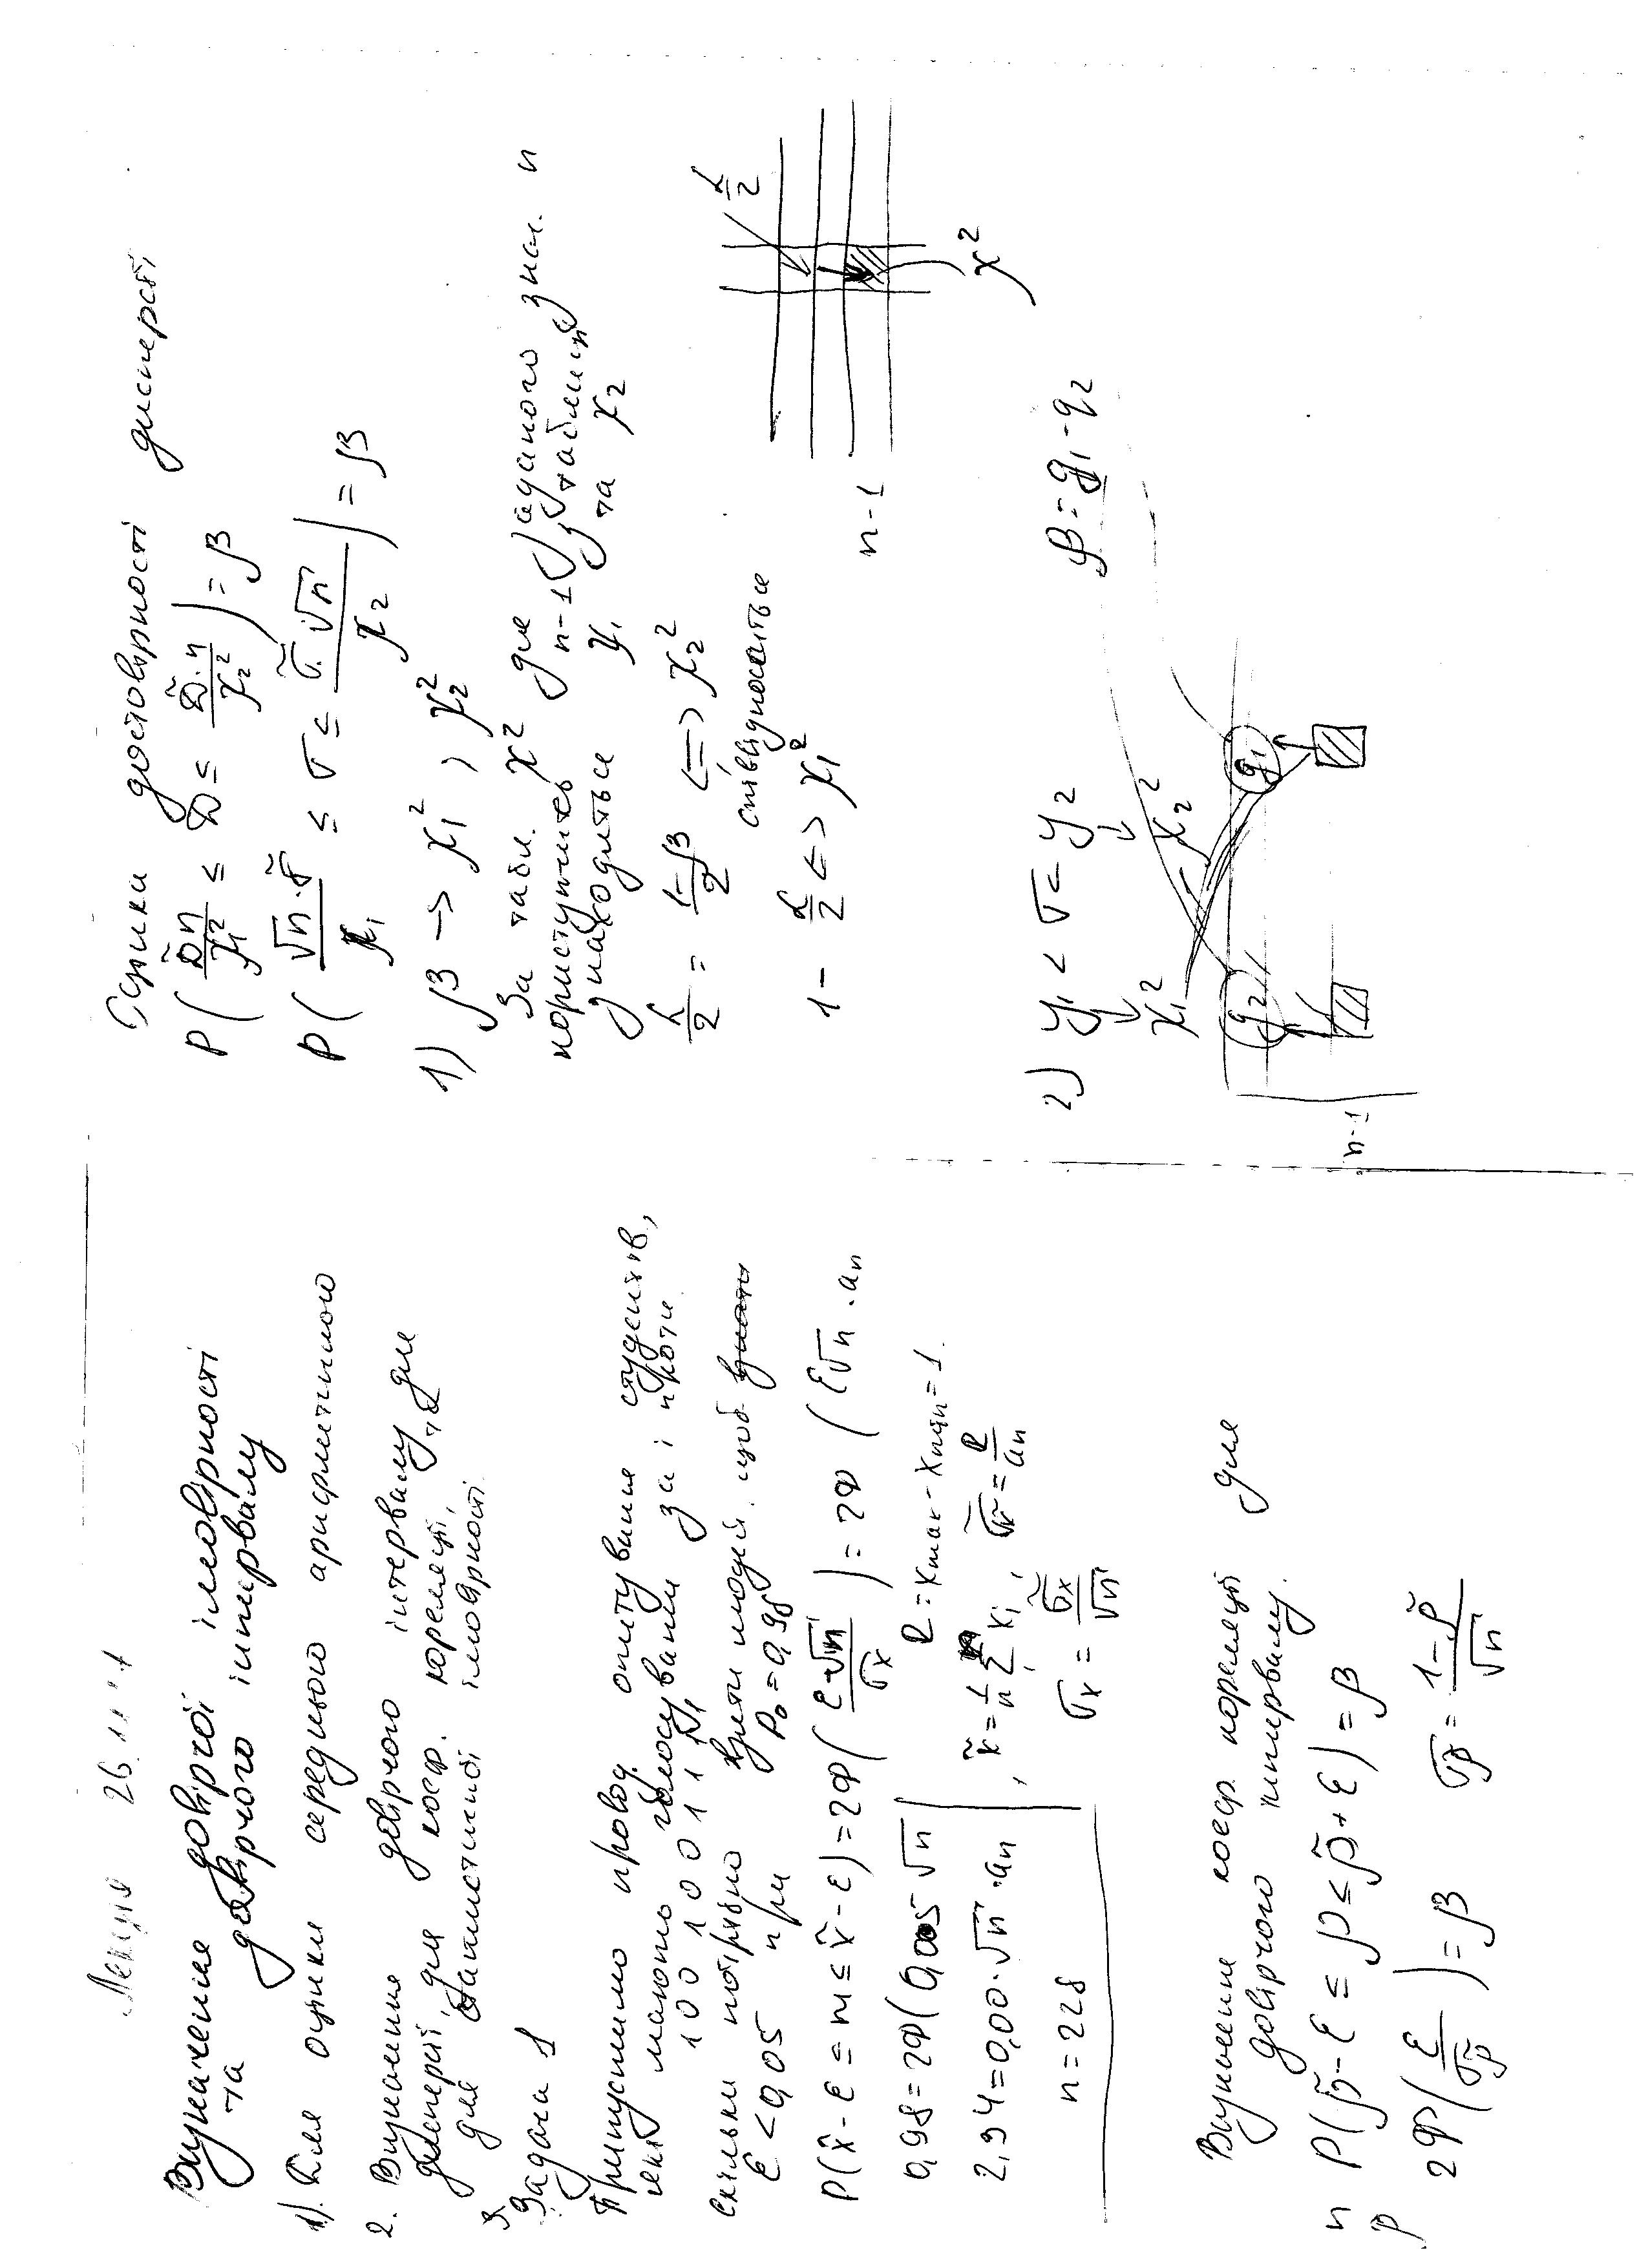 Лекція 26.11
Визначення довірчої імовірності
та довірчого інтервалу
1). Для оцінки середнього арифметичного
2. Визначення довірчого інтервалу для
дисперсії, для коеф. кореляції, та для
для статистичної імовірності
3
Задача 1
Припустимо провод. опитування студентів,
які мають голосувати за і проти
1 0 0 1 0 0 1 1
Скільки потрібно взяти людей щоб
ε < 0,05 при P₀ = 0,98
P(x̃ - ε ≤ m ≤ x̃ - ε) = 2Ф(ε√n / σx) = 2Ф(ε√n · aₙ
0,98 = 2Ф(0,005√n
R = xmax - xmin = 1
2,34 = 0,00·√n·aₙ , x̃ = 1/n Σ xᵢ , σ̃x = R/aₙ
n = 228 σx = σ̃x/√n
Визначення коеф. кореляції для
довірчого інтервалу.
n P(ρ̃ - ε ≤ ρ ≤ ρ̃ + ε) = β
ρ 2Ф(ε/σρ̃) = β σρ̃ = 1-ρ̃ / √n
Оцінка достовірності дисперсії
P(D̃n/χ₁² ≤ D ≤ D̃·n/χ₂²) = β
P(√n·σ̃/χ₁ ≤ σ ≤ σ̃·√n/χ₂) = β
1) β -> χ₁² , χ₂²
За табл. χ² для заданого знач. n
користуючись n-1 з таблиці
знаходиться χ₁ та χ₂
α/2 = 1-β/2 <=> χ₂²
співвідноситься
1 - α/2 <=> χ₁²
α/2
n-1
χ²
2) y₁ < σ < y₂
χ₁² χ₂²
β = q₁ - q₂
q₂ q₁
n-1